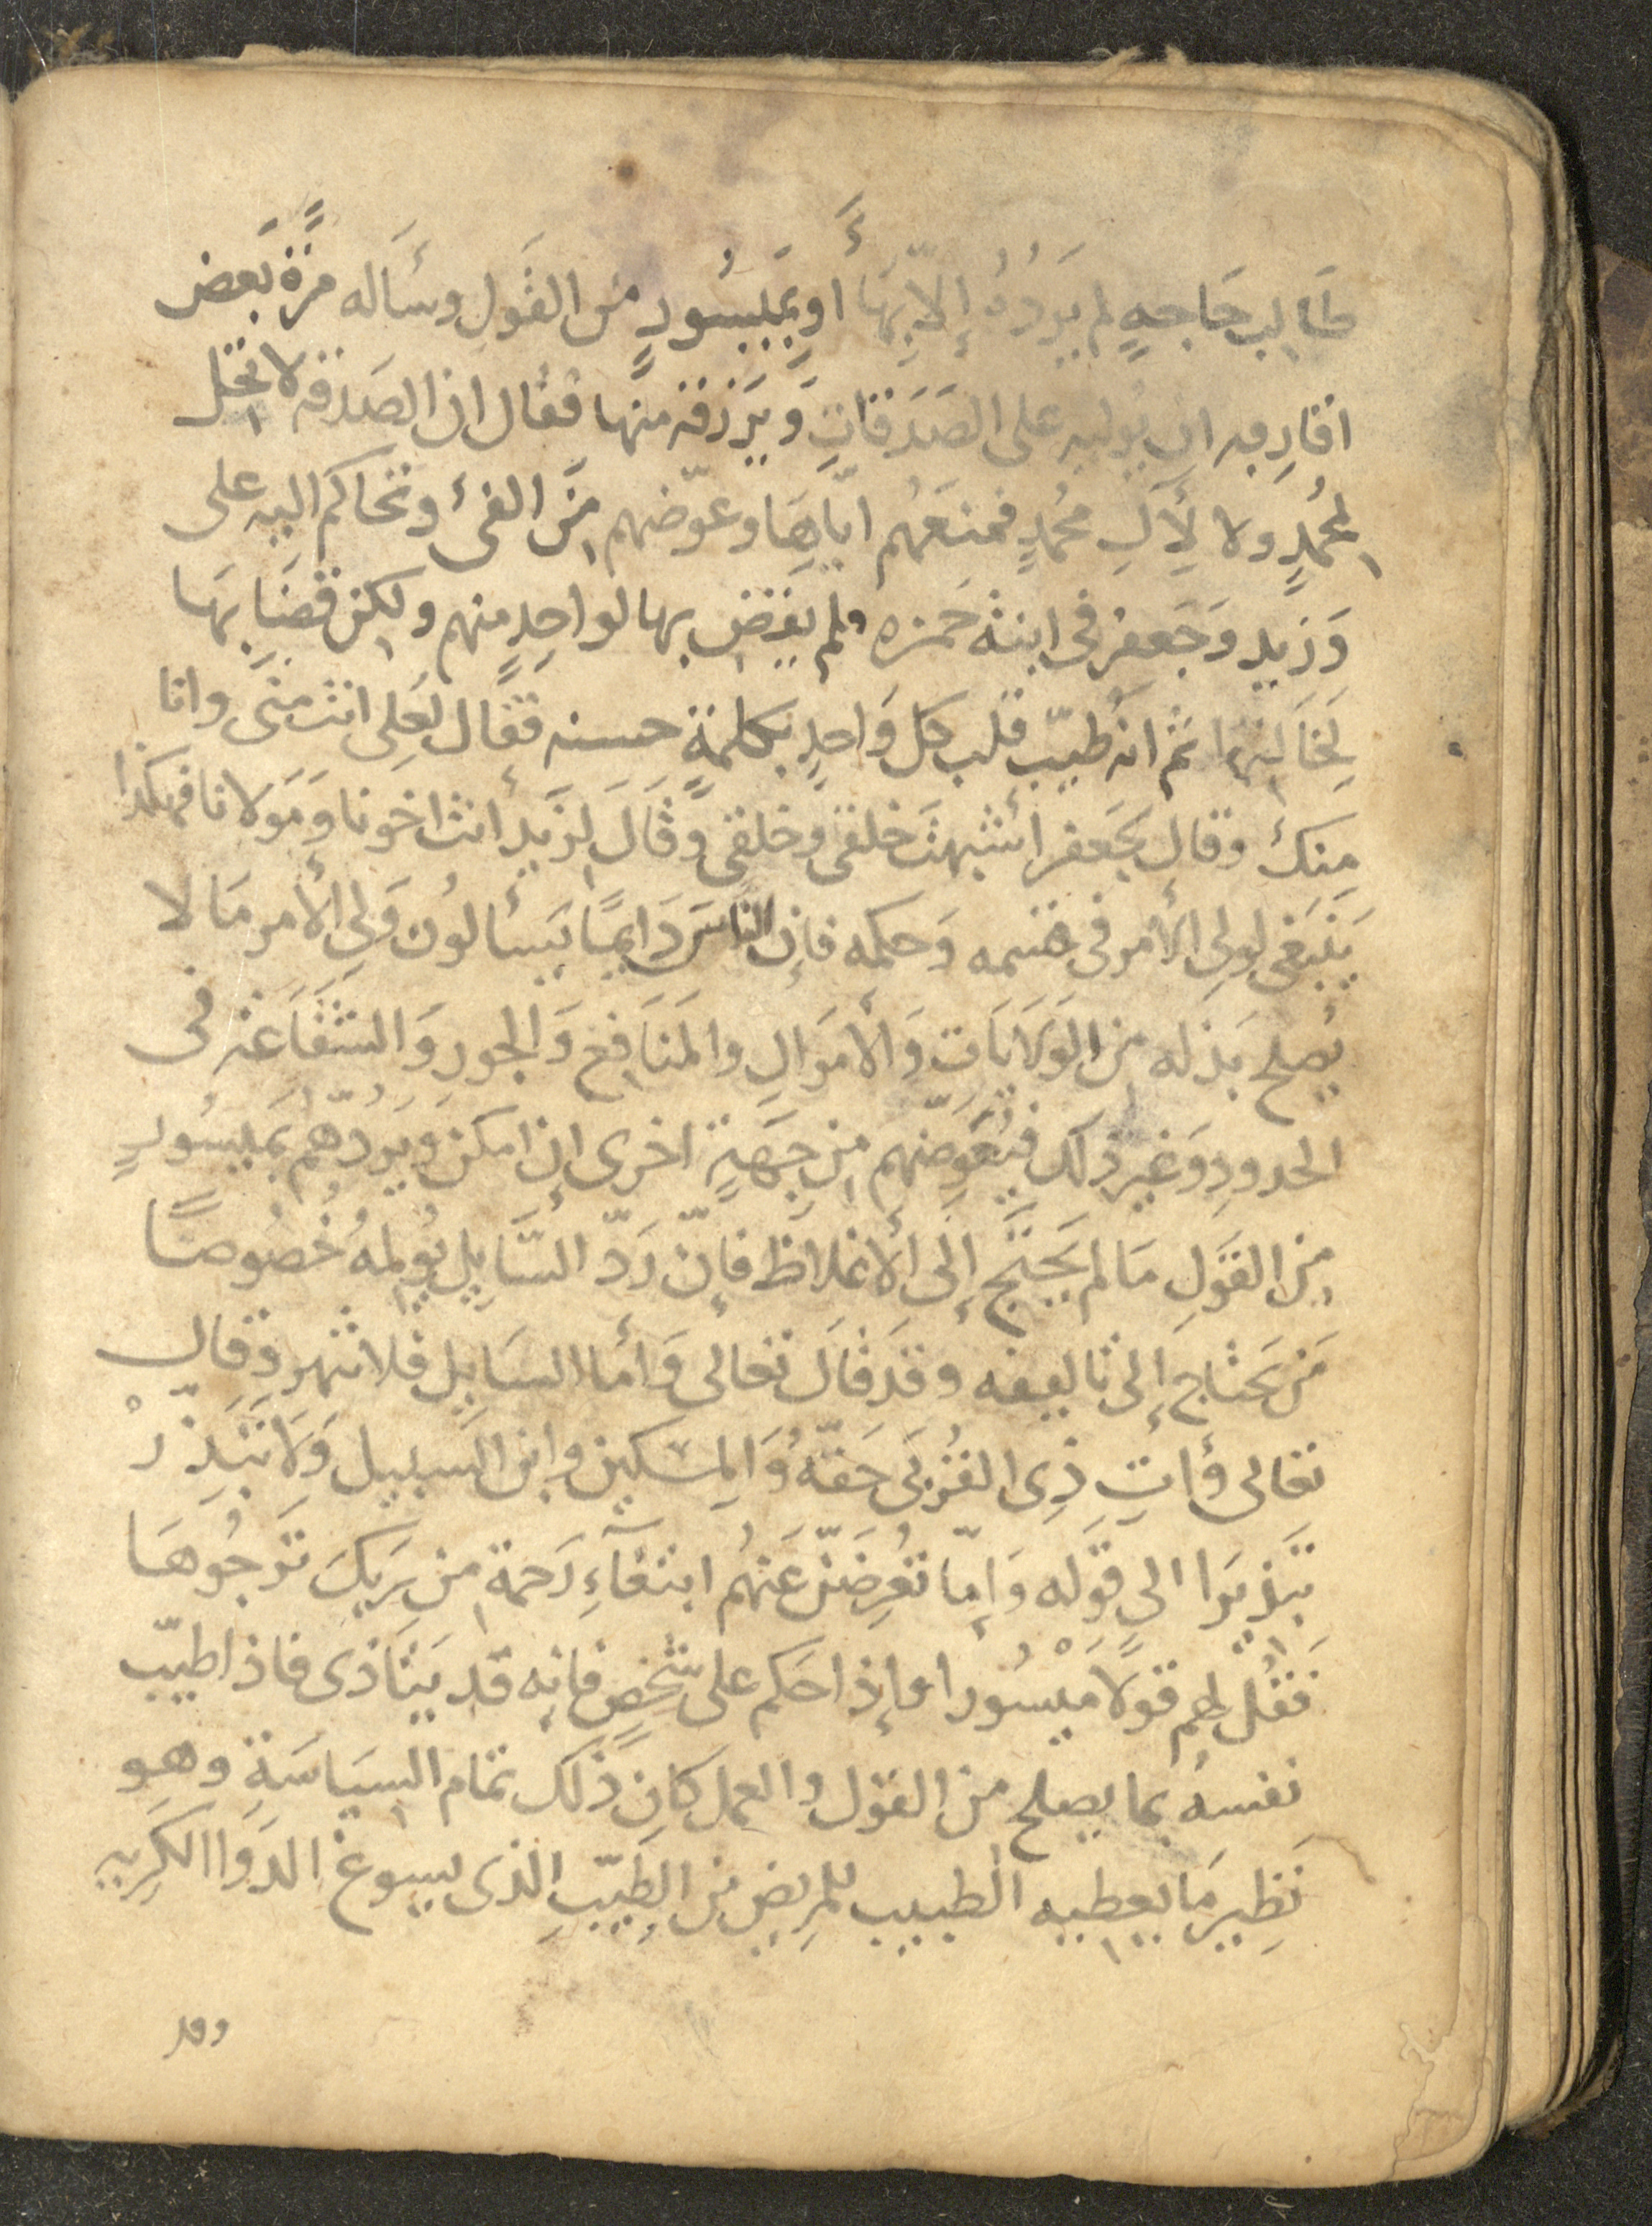 طَالِب حَاجهٍ لم يَرُدّهُ إِلاّ بِهَا أَو بَميسُورٍ مِن القَولِ وسَأله مَرةً بَعَض
اقاربه ان يُوليه على الصَدَقاتِ وَيَرزقه منها فقال ان الصَدقه لا تحِل
لمُحمدٍ ولا لِألِ مُحمدٍ فمنعَهُم ايّاهَا وعوّضهم مِنَ الفئ وتحاكم اليه على
وَزيد وَجَعفر في ابنة حَمزه فلم يَقض بها لواحِدٍ منهم ولكِن قضَا بهَا
لِخَالتِها ثم انه طيّب قلب كل وَاحدٍ بكلمةٍ حسنه فقال لعَلِى انت منّى وانا
مِنكَ وقال لجَعفر أشبهتَ خلقى وخلقى وَقَالَ لِزَيد أنت اخونا وَمَولانا فهكذا
يَنبَغى لولى الأمر فى قسمه وَحكمه فإن الناسَ دَايمًا يَسألونَ وَلِى الأمر مَا لا
يُصلح بَذله من الوَلايَاتِ وَالأموَالِ والمَنَافِع وَالجورِ وَالشَفَاعَه فى
الحدودِ وَغيرِ ذلك فيُعَوِّضهم مِن جِهَةٍ اخرى إن امكن وَيَرُدّهم بمَيسُورٍ
مِن القَولِ مَا لم يَحتَج إلى الأغلاظ فإنّ رَدّ السَّايِل يُولمهُ خُصُوصًا
مَن يحتاج إلى تاليفه وقَد قَالَ تعالى وَأما السَايِل فلا تنهر وَقال
تعالى وأاتِ ذِى القُربَى حَقّهُ وَالمِسكين وابن السَبيل وَلاَ تُبَذِّرْ
تَبذيرَا الى قَوله وَإمّا تُعرِضَنّ عَنهُم ابتغآءِ رَحمة مِن رَبِكَ تَرجُوهَا
فَقُل لهم قولاً مَيْسُورا وإذا حَكم على شخصٍ فإنه قد يَتَأذى فاذا طيّب
نفسهُ بما يصلح من القول والعمل كان ذَلك تمام السيَاسَةِ وهو
نَظِير مَا يعطيه الطبيب للمرِيض مِن الطَيِّب الذى يسوغ الدَوَا الكَرِيه
وقد